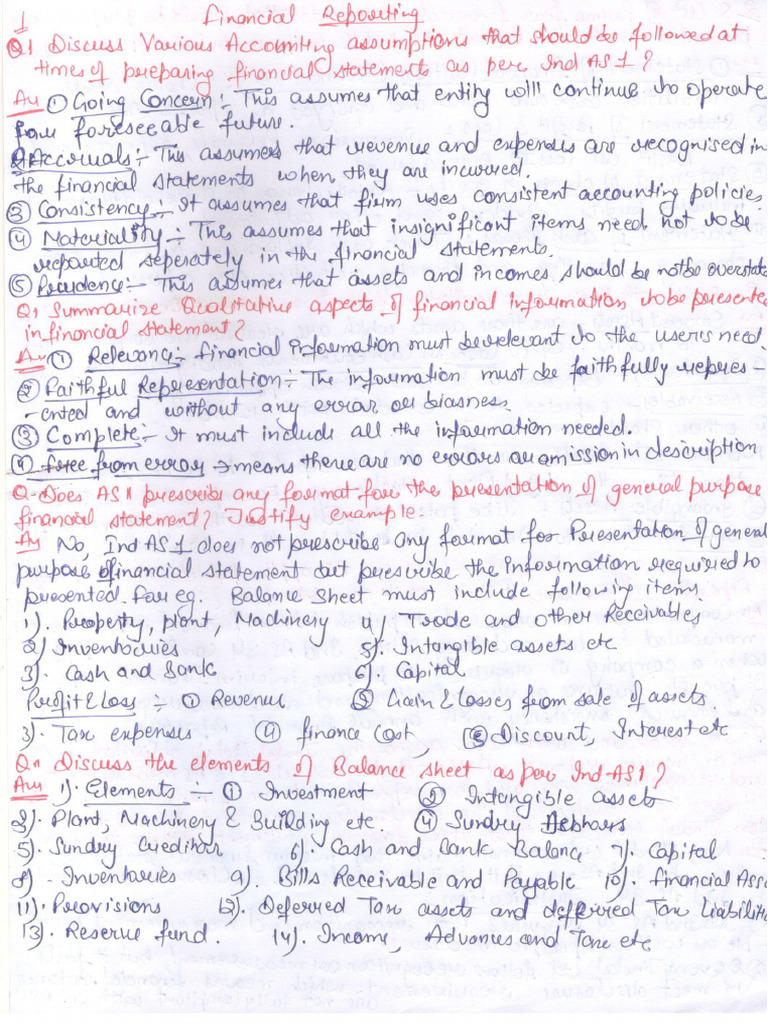 1 Financial Reporting
Q1 Discuss Various Accounting assumptions that should be followed at
times of preparing financial statements as per Ind AS 1?
Ans ① Going Concern:- This assumes that entity will continue to operate
for foreseeable future.
② Accruals:- This assumes that revenue and expenses are recognised in
the financial statements when they are incurred.
③ Consistency:- It assumes that firm uses consistent accounting policies.
④ Materiality:- This assumes that insignificant items need not to be
reported seperately in the financial statements.
⑤ Prudence:- This assumes that assets and incomes should be not be overstate
Q. Summarize Qualitative aspects of financial information to be presente
in financial statement?
Ans ① Relevance:- financial information must be relevant to the user's need.
② Faithful Representation:- The information must be faithfully repres-
ented and without any error or biasness.
③ Complete:- It must include all the information needed.
④ Free from error → means there are no errors or omission in description
Q- Does AS 1 prescribe any format for the presentation of general purpose
financial statement? Justify example:
Ans No, Ind AS 1 does not prescribe any format for Presentation of general
purpose of financial statement but prescribe the information required to
presented. For eg. Balance Sheet must include following items.
1). Property, plant, Machinery 4) Trade and other Receivables
2) Inventories 5). Intangible assets etc
3). Cash and Bank 6). Capital
Profit & loss :- ① Revenue ② Gain & losses from sale of assets.
3). Tax expenses ④ finance Cost, ⑤ Discount, Interest etc
Q. Discuss the elements of Balance sheet as per Ind-AS 1?
Ans 1). Elements - ① Investment ② Intangible assets
3). Plant, Machinery & Building etc ④ Sundry Debtors
5). Sundry Creditors 6). Cash and Bank Balance 7). Capital
8) - Inventories 9). Bills Receivable and Payable 10). financial Ass
11). Provisions 12). Deferred Tax assets and defferred Tax Liabiliti
13). Reserve fund. 14). Income, Advances and Tax etc